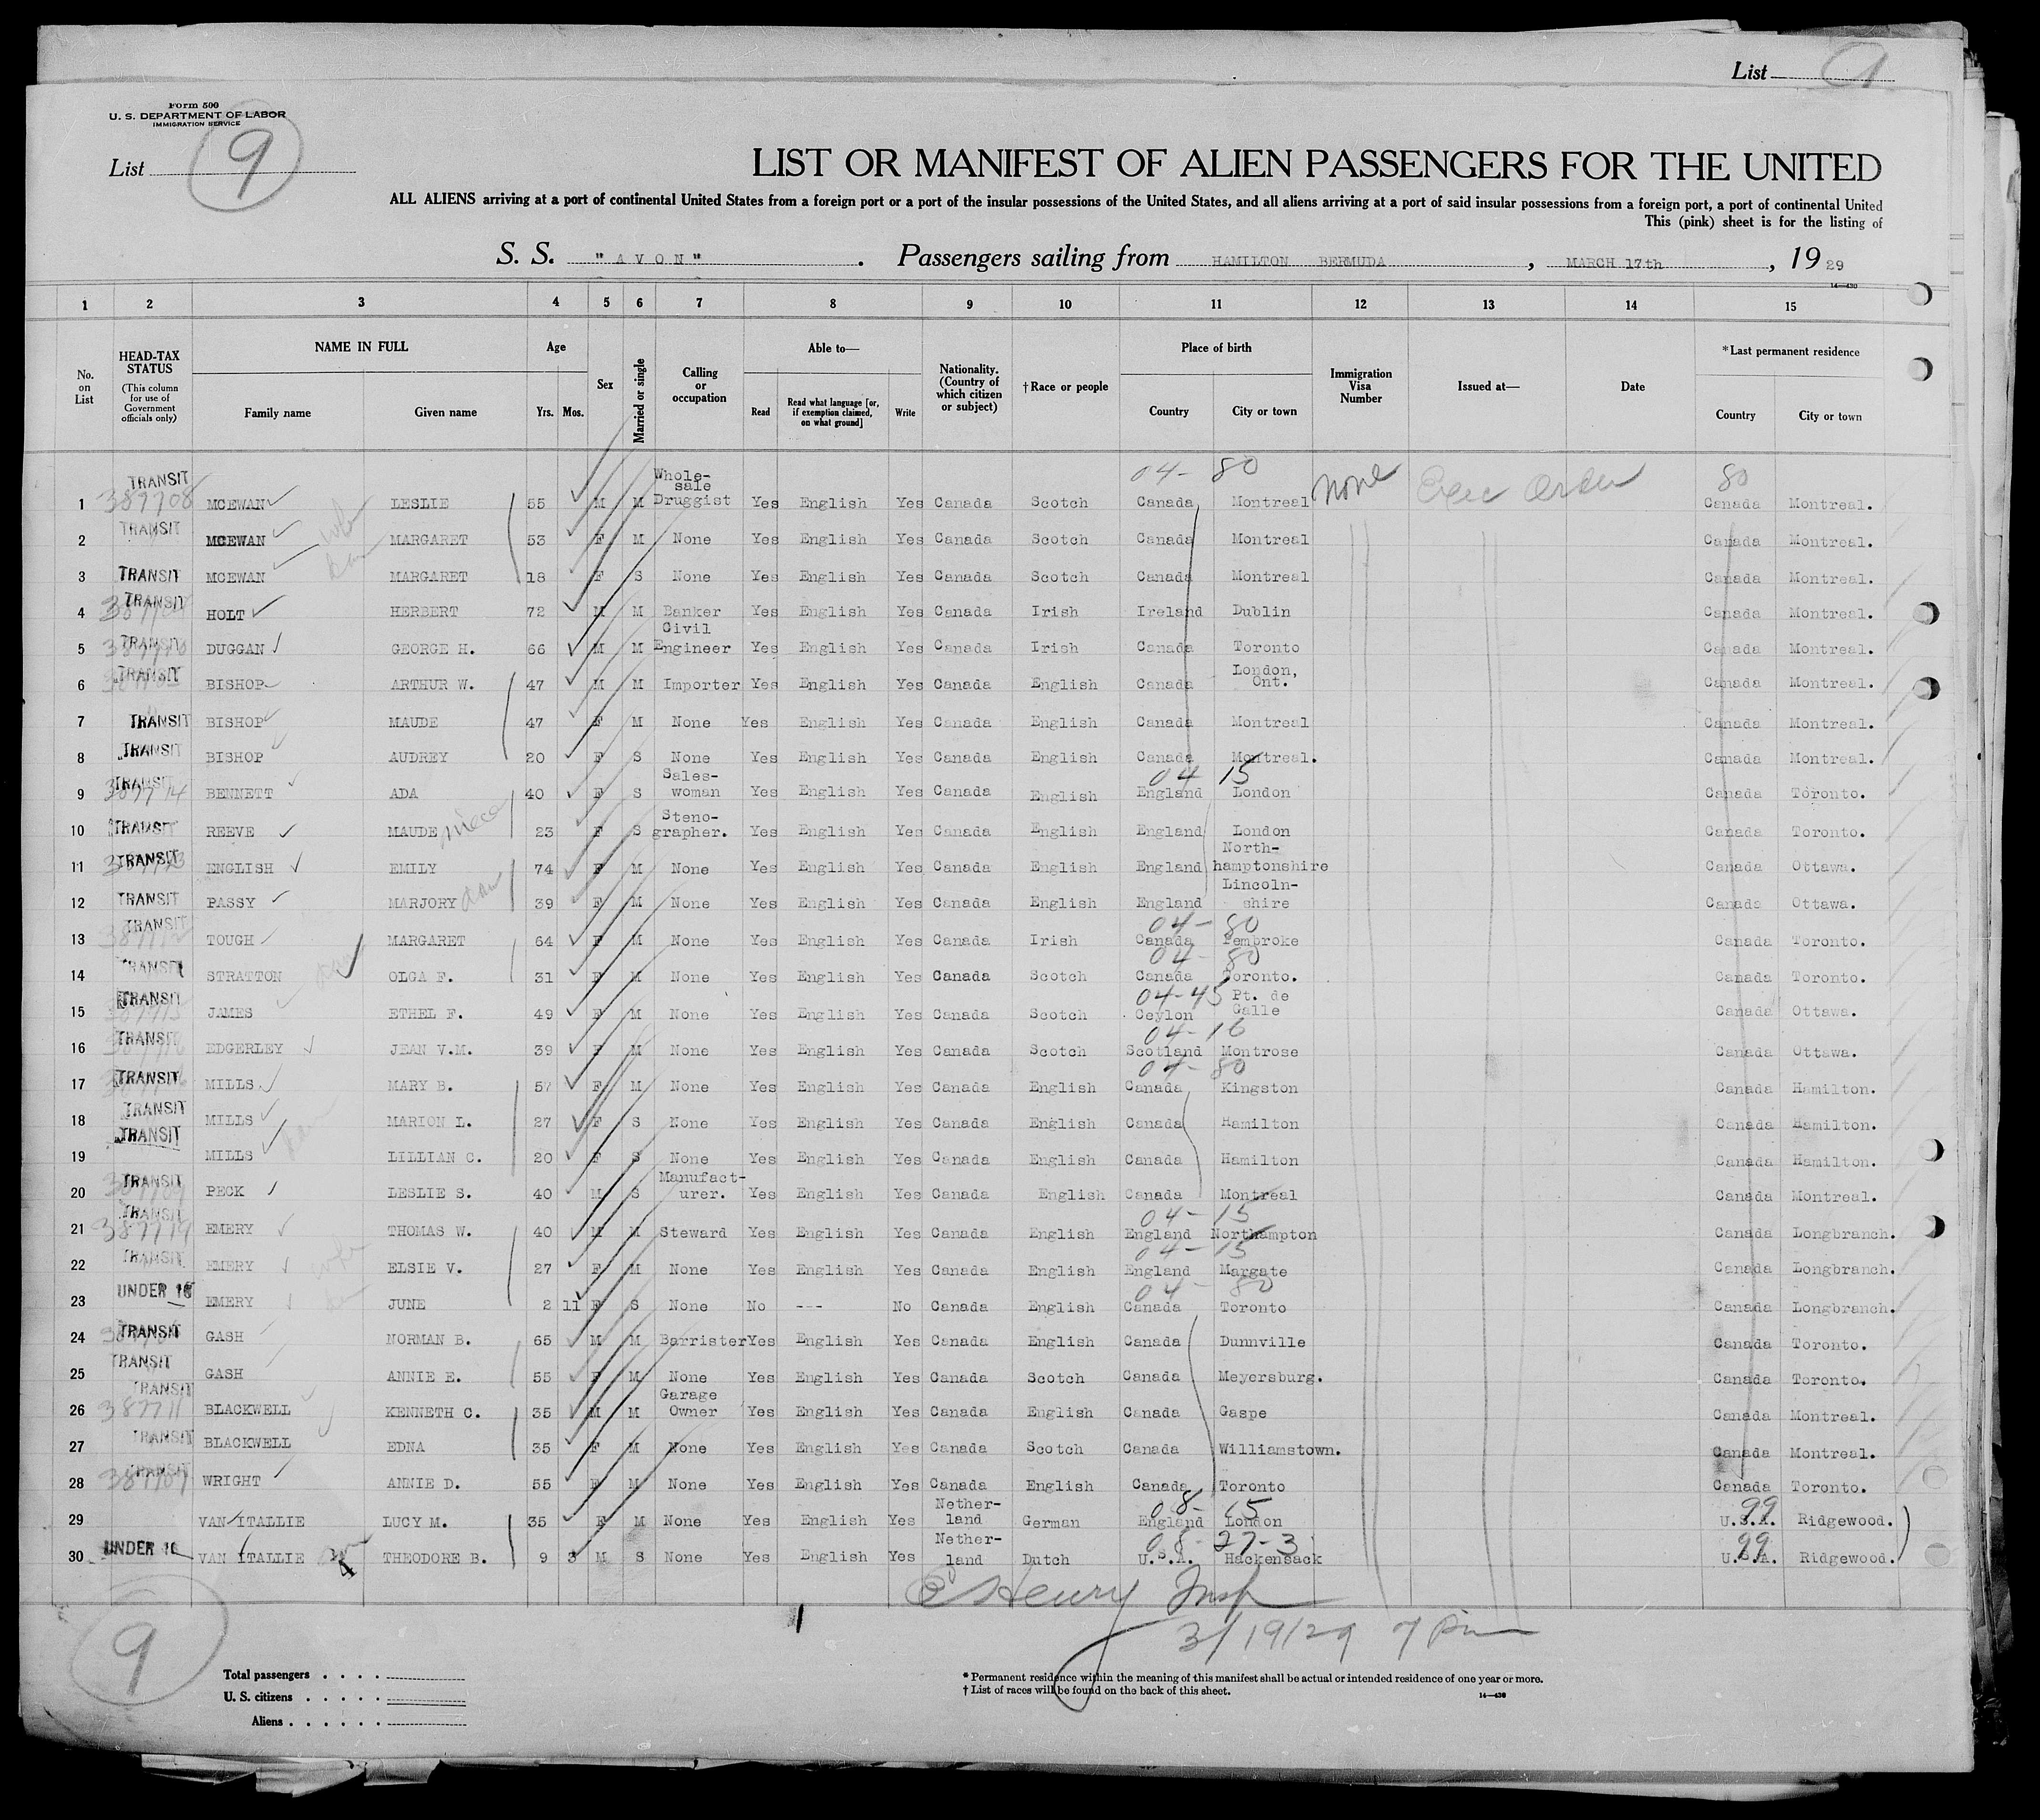 List 9
Form 500
U. S. DEPARTMENT OF LABOR
IMMIGRATION SERVICE
List 9
LIST OR MANIFEST OF ALIEN PASSENGERS FOR THE UNITED
ALL ALIENS arriving at a port of continental United States from a foreign port or a port of the insular possessions of the United States, and all aliens arriving at a port of said insular possessions from a foreign port, a port of continental United
This (pink) sheet is for the listing of
S. S. "AVON". Passengers sailing from HAMILTON BERMUDA, MARCH 17th, 19 29
14—430
1 2 3 4 5 6 7 8 9 10 11 12 13 14 15
No. on List HEAD-TAX STATUS (This column for use of Government officials only) NAME IN FULL Family name Given name Age Yrs. Mos. Sex Married or single Calling or occupation Able to— Read Read what language [or, if exemption claimed, on what ground] Write Nationality. (Country of which citizen or subject) † Race or people Place of birth Country City or town Immigration Visa Number Issued at— Date * Last permanent residence Country City or town
04- 80 80
1 TRANSIT 387708 MCEWAN LESLIE 55 M M Whole-sale Druggist Yes English Yes Canada Scotch Canada Montreal None Exec Order Canada Montreal.
2 TRANSIT MCEWAN wife MARGARET 53 F M None Yes English Yes Canada Scotch Canada Montreal Canada Montreal.
3 TRANSIT MCEWAN dau MARGARET 18 F S None Yes English Yes Canada Scotch Canada Montreal Canada Montreal.
4 TRANSIT HOLT HERBERT 72 M M Banker Yes English Yes Canada Irish Ireland Dublin Canada Montreal.
5 TRANSIT DUGGAN GEORGE H. 66 M M Civil Engineer Yes English Yes Canada Irish Canada Toronto Canada Montreal.
6 TRANSIT BISHOP ARTHUR W. 47 M M Importer Yes English Yes Canada English Canada London, Ont. Canada Montreal.
7 TRANSIT BISHOP MAUDE 47 F M None Yes English Yes Canada English Canada Montreal Canada Montreal.
8 TRANSIT BISHOP AUDREY 20 F S None Yes English Yes Canada English Canada Montreal. Canada Montreal.
04 15
9 TRANSIT 387714 BENNETT ADA 40 F S Sales-woman Yes English Yes Canada English England London Canada Toronto.
10 TRANSIT REEVE MAUDE niece 23 F S Steno-grapher. Yes English Yes Canada English England London Canada Toronto.
11 TRANSIT ENGLISH EMILY 74 F M None Yes English Yes Canada English England North-hamptonshire Canada Ottawa.
12 TRANSIT PASSY MARJORY dau 39 F M None Yes English Yes Canada English England Lincoln-shire Canada Ottawa.
04- 80
13 TRANSIT TOUGH MARGARET 64 F M None Yes English Yes Canada Irish Canada Pembroke Canada Toronto.
04- 80
14 TRANSIT STRATTON dau OLGA F. 31 F M None Yes English Yes Canada Scotch Canada Toronto. Canada Toronto.
04-45
15 TRANSIT JAMES ETHEL F. 49 F M None Yes English Yes Canada Scotch Ceylon Pt. de Galle Canada Ottawa.
04-16
16 TRANSIT EDGERLEY JEAN V.M. 39 F M None Yes English Yes Canada Scotch Scotland Montrose Canada Ottawa.
04- 80
17 TRANSIT MILLS MARY B. 57 F M None Yes English Yes Canada English Canada Kingston Canada Hamilton.
18 TRANSIT MILLS MARION L. 27 F S None Yes English Yes Canada English Canada Hamilton Canada Hamilton.
19 TRANSIT MILLS LILLIAN C. 20 F S None Yes English Yes Canada English Canada Hamilton Canada Hamilton.
20 TRANSIT PECK LESLIE S. 40 M S Manufact-urer. Yes English Yes Canada English Canada Montreal Canada Montreal.
04- 15
21 TRANSIT 387719 EMERY THOMAS W. 40 M M Steward Yes English Yes Canada English England Northampton Canada Longbranch.
04- 15
22 TRANSIT EMERY wife ELSIE V. 27 F M None Yes English Yes Canada English England Margate Canada Longbranch.
04 80
23 UNDER 16 EMERY JUNE 2 11 F S None No --- No Canada English Canada Toronto Canada Longbranch.
24 TRANSIT GASH NORMAN B. 65 M M Barrister Yes English Yes Canada English Canada Dunnville Canada Toronto.
25 TRANSIT GASH ANNIE E. 55 F M None Yes English Yes Canada Scotch Canada Meyersburg. Canada Toronto.
26 TRANSIT 387711 BLACKWELL KENNETH C. 35 M M Garage Owner Yes English Yes Canada English Canada Gaspe Canada Montreal.
27 TRANSIT BLACKWELL EDNA 35 F M None Yes English Yes Canada Scotch Canada Williamstown. Canada Montreal.
28 TRANSIT 387707 WRIGHT ANNIE D. 55 F M None Yes English Yes Canada English Canada Toronto Canada Toronto.
08- 15 99
29 VAN ITALLIE LUCY M. 35 F M None Yes English Yes Nether-land German England London U.S.A. Ridgewood.
08- 27-3 99
30 UNDER 16 VAN ITALLIE son THEODORE B. 9 3 M S None Yes English Yes Nether-land Dutch U.S.A. Hackensack U.S.A. Ridgewood.
Henry Insp
3/19/29 7 Pm
9
Total passengers . . . .
U. S. citizens . . . . .
Aliens . . . . . .
* Permanent residence within the meaning of this manifest shall be actual or intended residence of one year or more.
† List of races will be found on the back of this sheet.
14—430